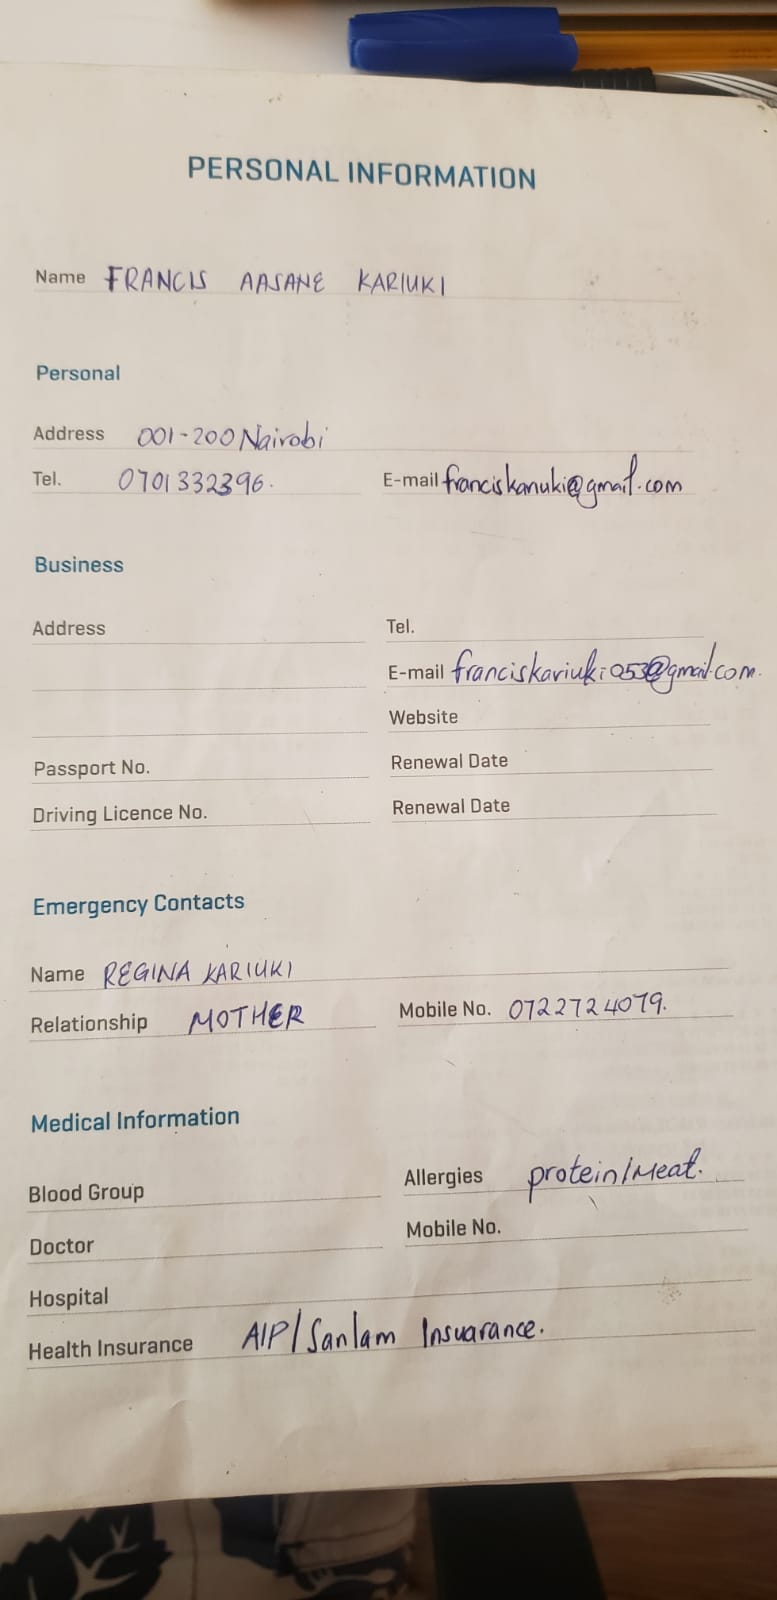 PERSONAL INFORMATION
Name FRANCIS AASANE KARIUKI
Personal
Address 001-200 Nairobi
Tel. 0701332396. E-mail franciskanuki@gmail.com
Business
Address Tel.
E-mail franciskariuki053@gmail.com.
Website
Passport No. Renewal Date
Driving Licence No. Renewal Date
Emergency Contacts
Name REGINA KARIUKI
Relationship MOTHER Mobile No. 0722724079.
Medical Information
Blood Group Allergies protein/Meat.
Doctor Mobile No.
Hospital
Health Insurance AIP/Sanlam Insuarance.